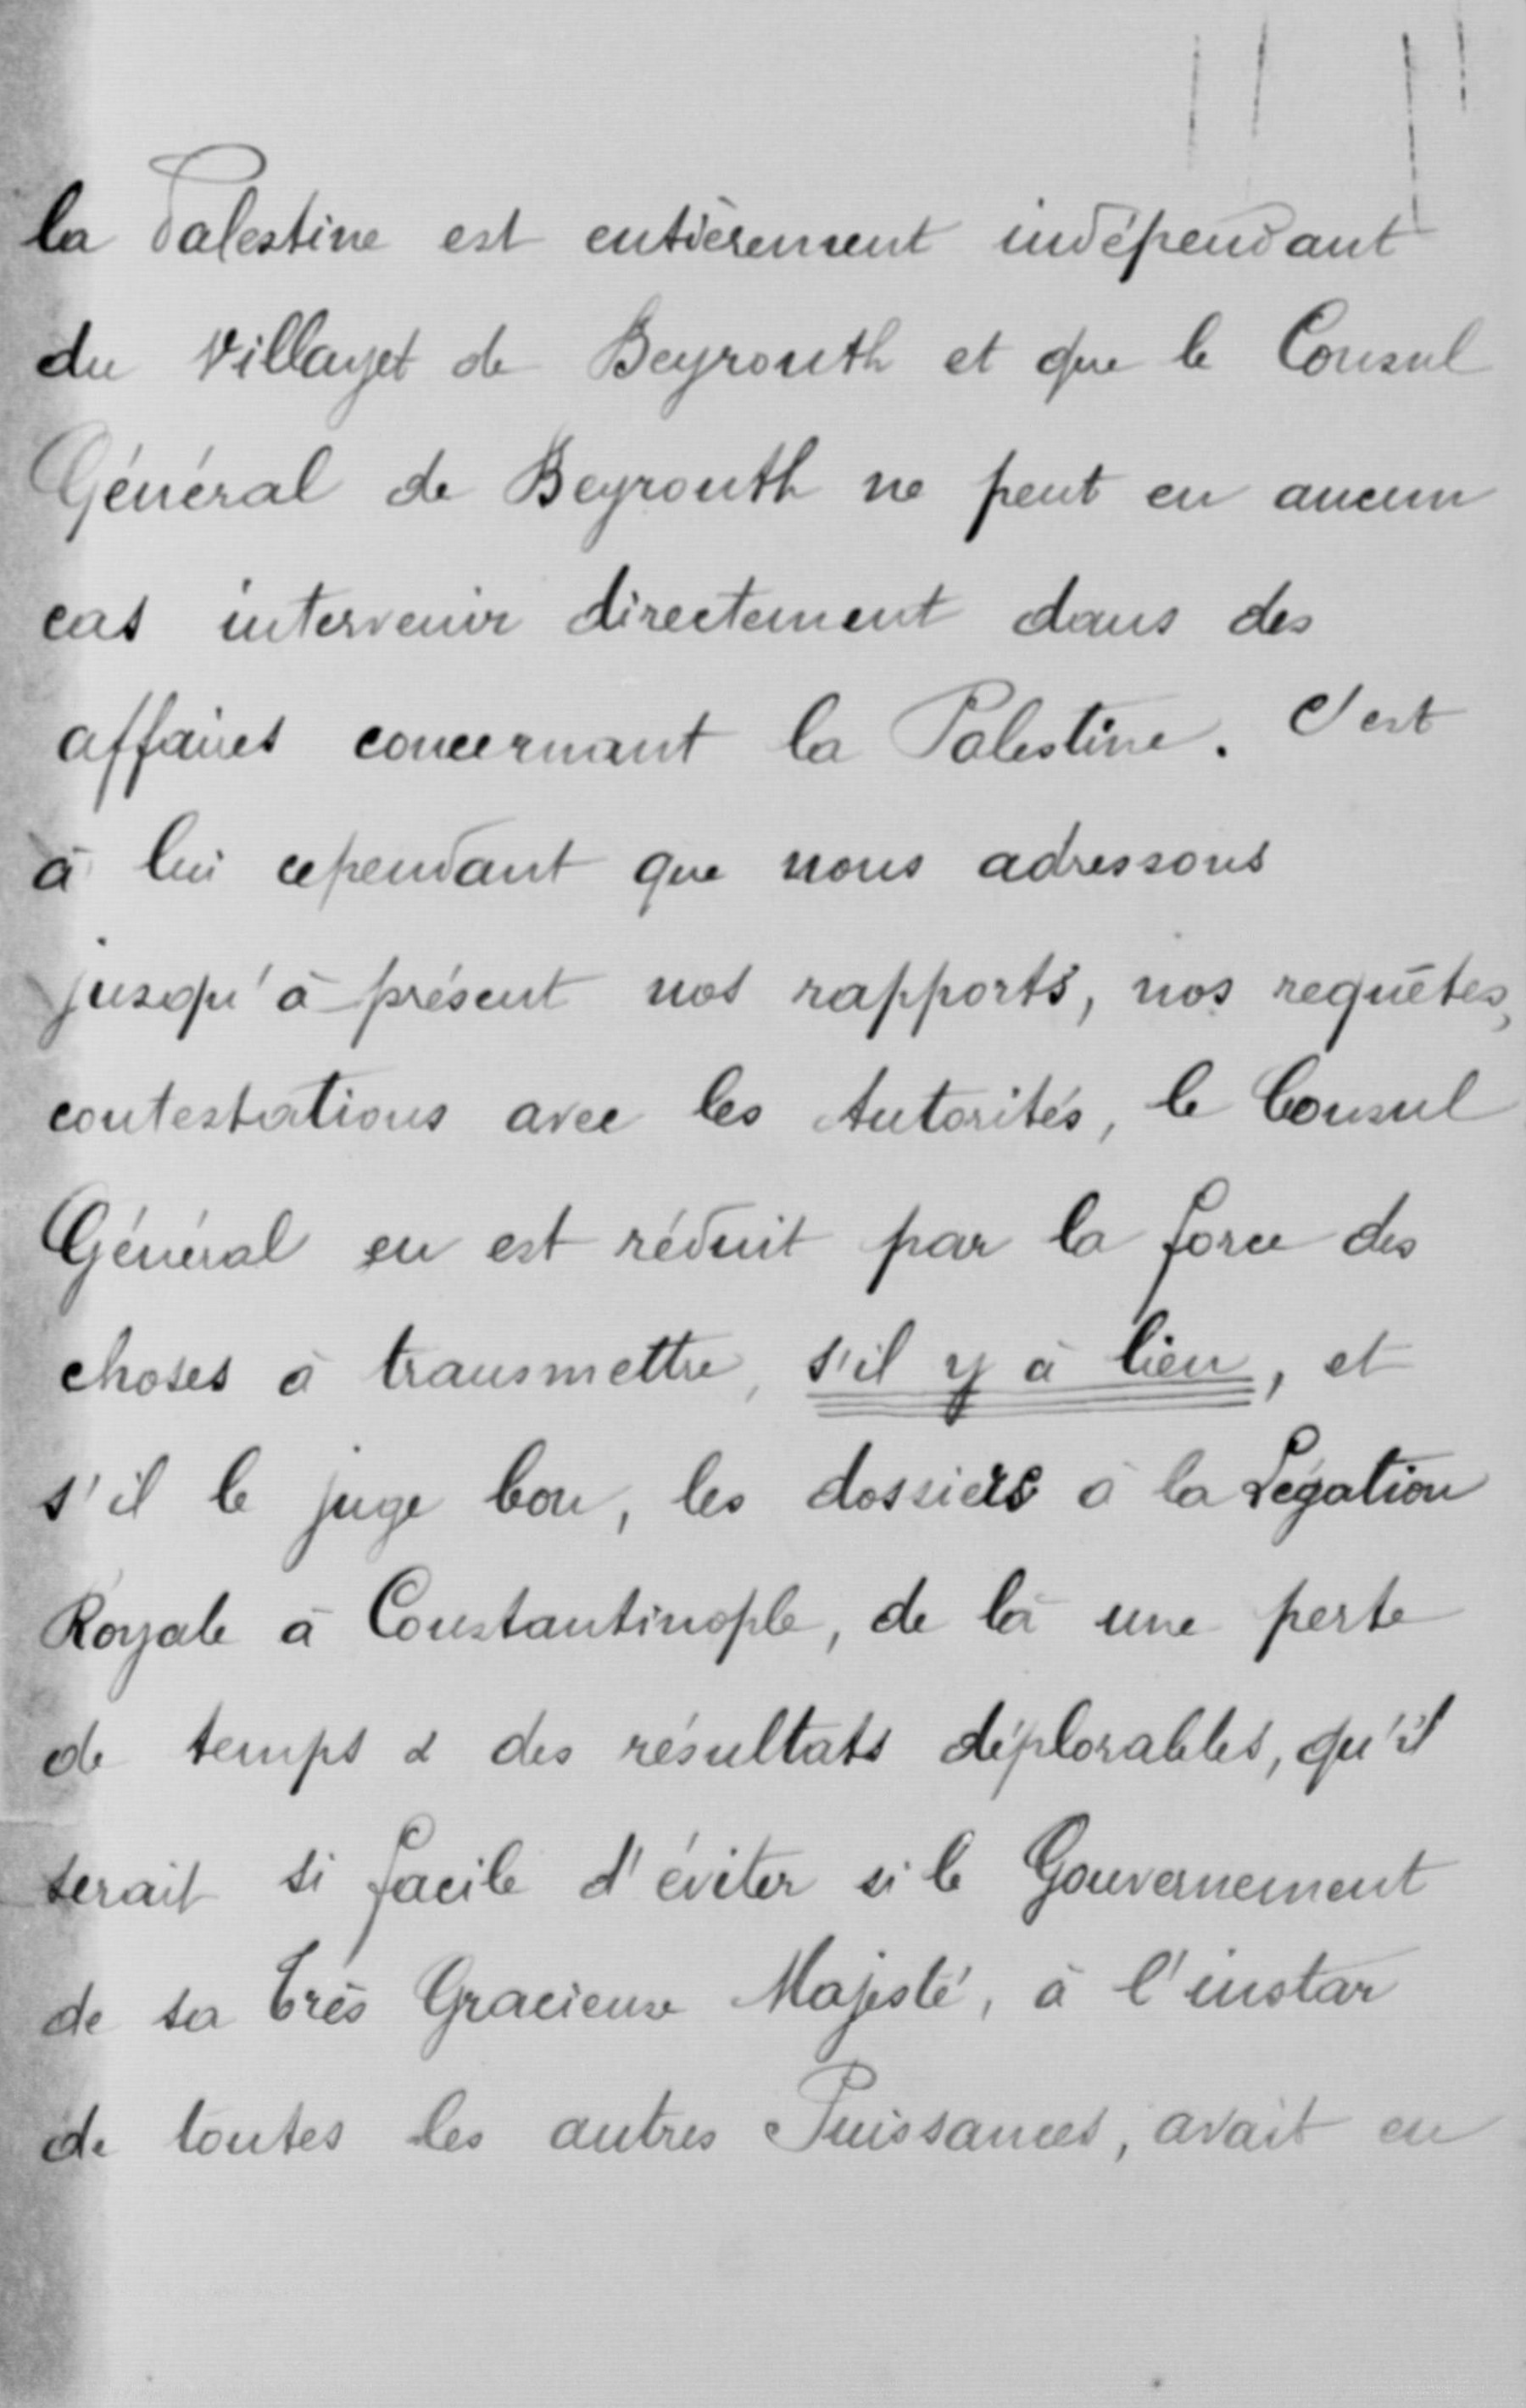 la Palestine est entièrement indépendant
du Villayet de Beyrouth et que le Consul
Général de Beyrouth ne peut en aucun
cas intervenir directement dans des
affaires concernant la Palestine. C'est
à lui cependant que nous adressons
jusqu'à présent nos rapports, nos requêtes,
contestations avec les Autorités, le Consul
Général en est réduit par la force des
choses à transmettre, s'il y à lieu, et
s'il le juge bon, les dossiers à la Légation
Royale à Constantinople, de là une perte
de temps & des résultats déplorables, qu'il
serait si facile d'éviter si le Gouvernement
de sa Très Gracieuse Majesté, à l'instar
de toutes les autres Puissances, avait en